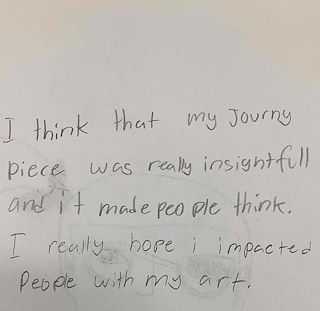 I think that my Journy
piece was really insightfull
and it made people think.
I really hope i impacted
People with my art.